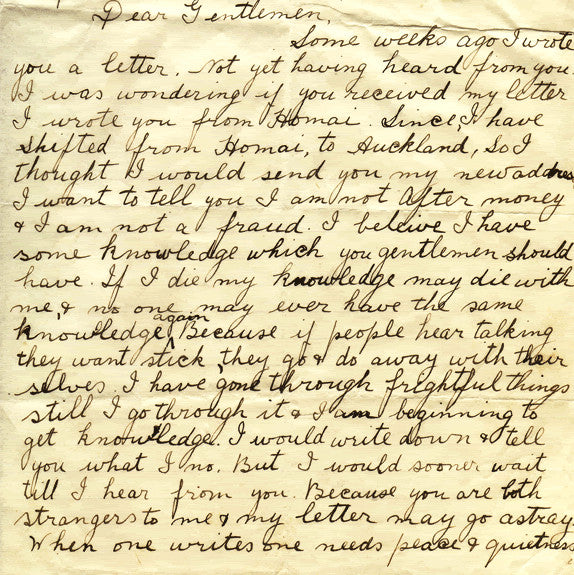 Dear Gentlemen,
Some weeks ago I wrote
you a letter. Not yet having heard from you.
I was wondering if you received my letter
I wrote you from Homai. Since, I have
shifted from Homai, to Auckland, so I
thought I would send you my new address
I want to tell you I am not After money
& I am not a fraud. I beleive I have
some knowledge which you gentlemen should
have. If I die my knowledge may die with
me, & no one may ever have the same
knowledge again. Because if people hear talking
they want stick, they go & do away with their
selves. I have gone through frightful things
still I go through it & I am beginning to
get knowledge. I would write down & tell
you what I no. But I would sooner wait
till I hear from you. Because you are both
strangers to me & my letter may go astray.
When one writes one needs peace & quietness